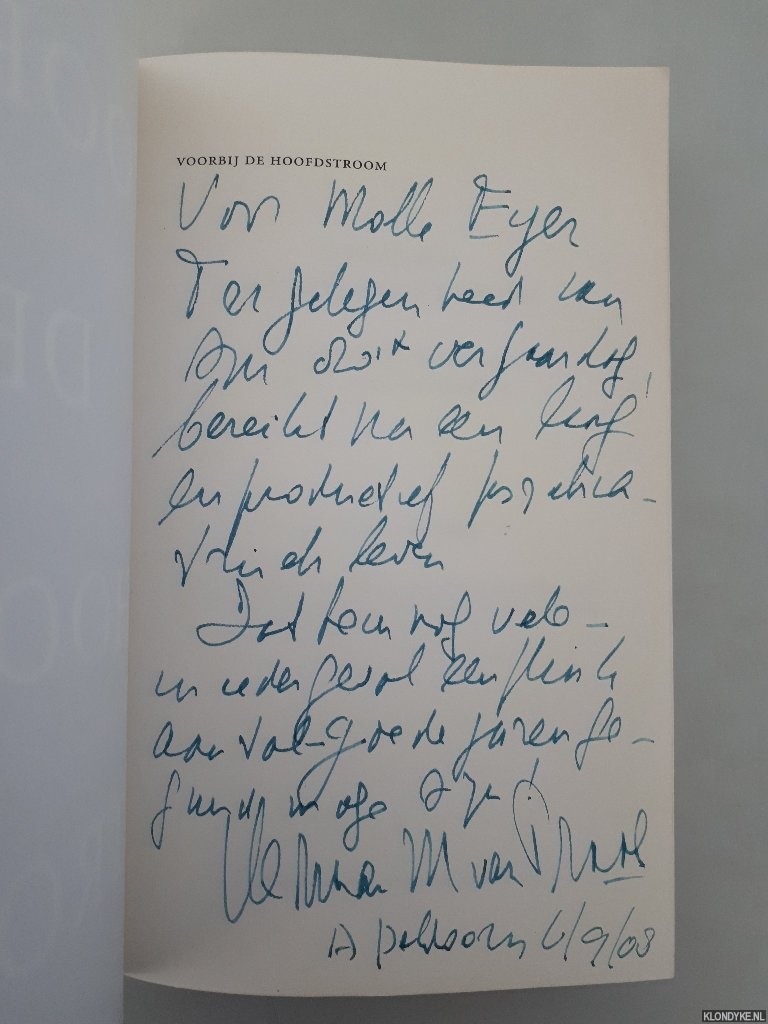 VOORBIJ DE HOOFDSTROOM
Voor Molle Eyer
Ter gelegenheid van
zijn verjaardag,
bereikt na een lang
en productief psychia-
trisch leven
Dat hem nog vele -
in ieder geval een flink
aantal - goede jaren ge-
gund moge zijn!
Herman M van Praag
Apeldoorn 6/9/08
KLONDYKE.NL